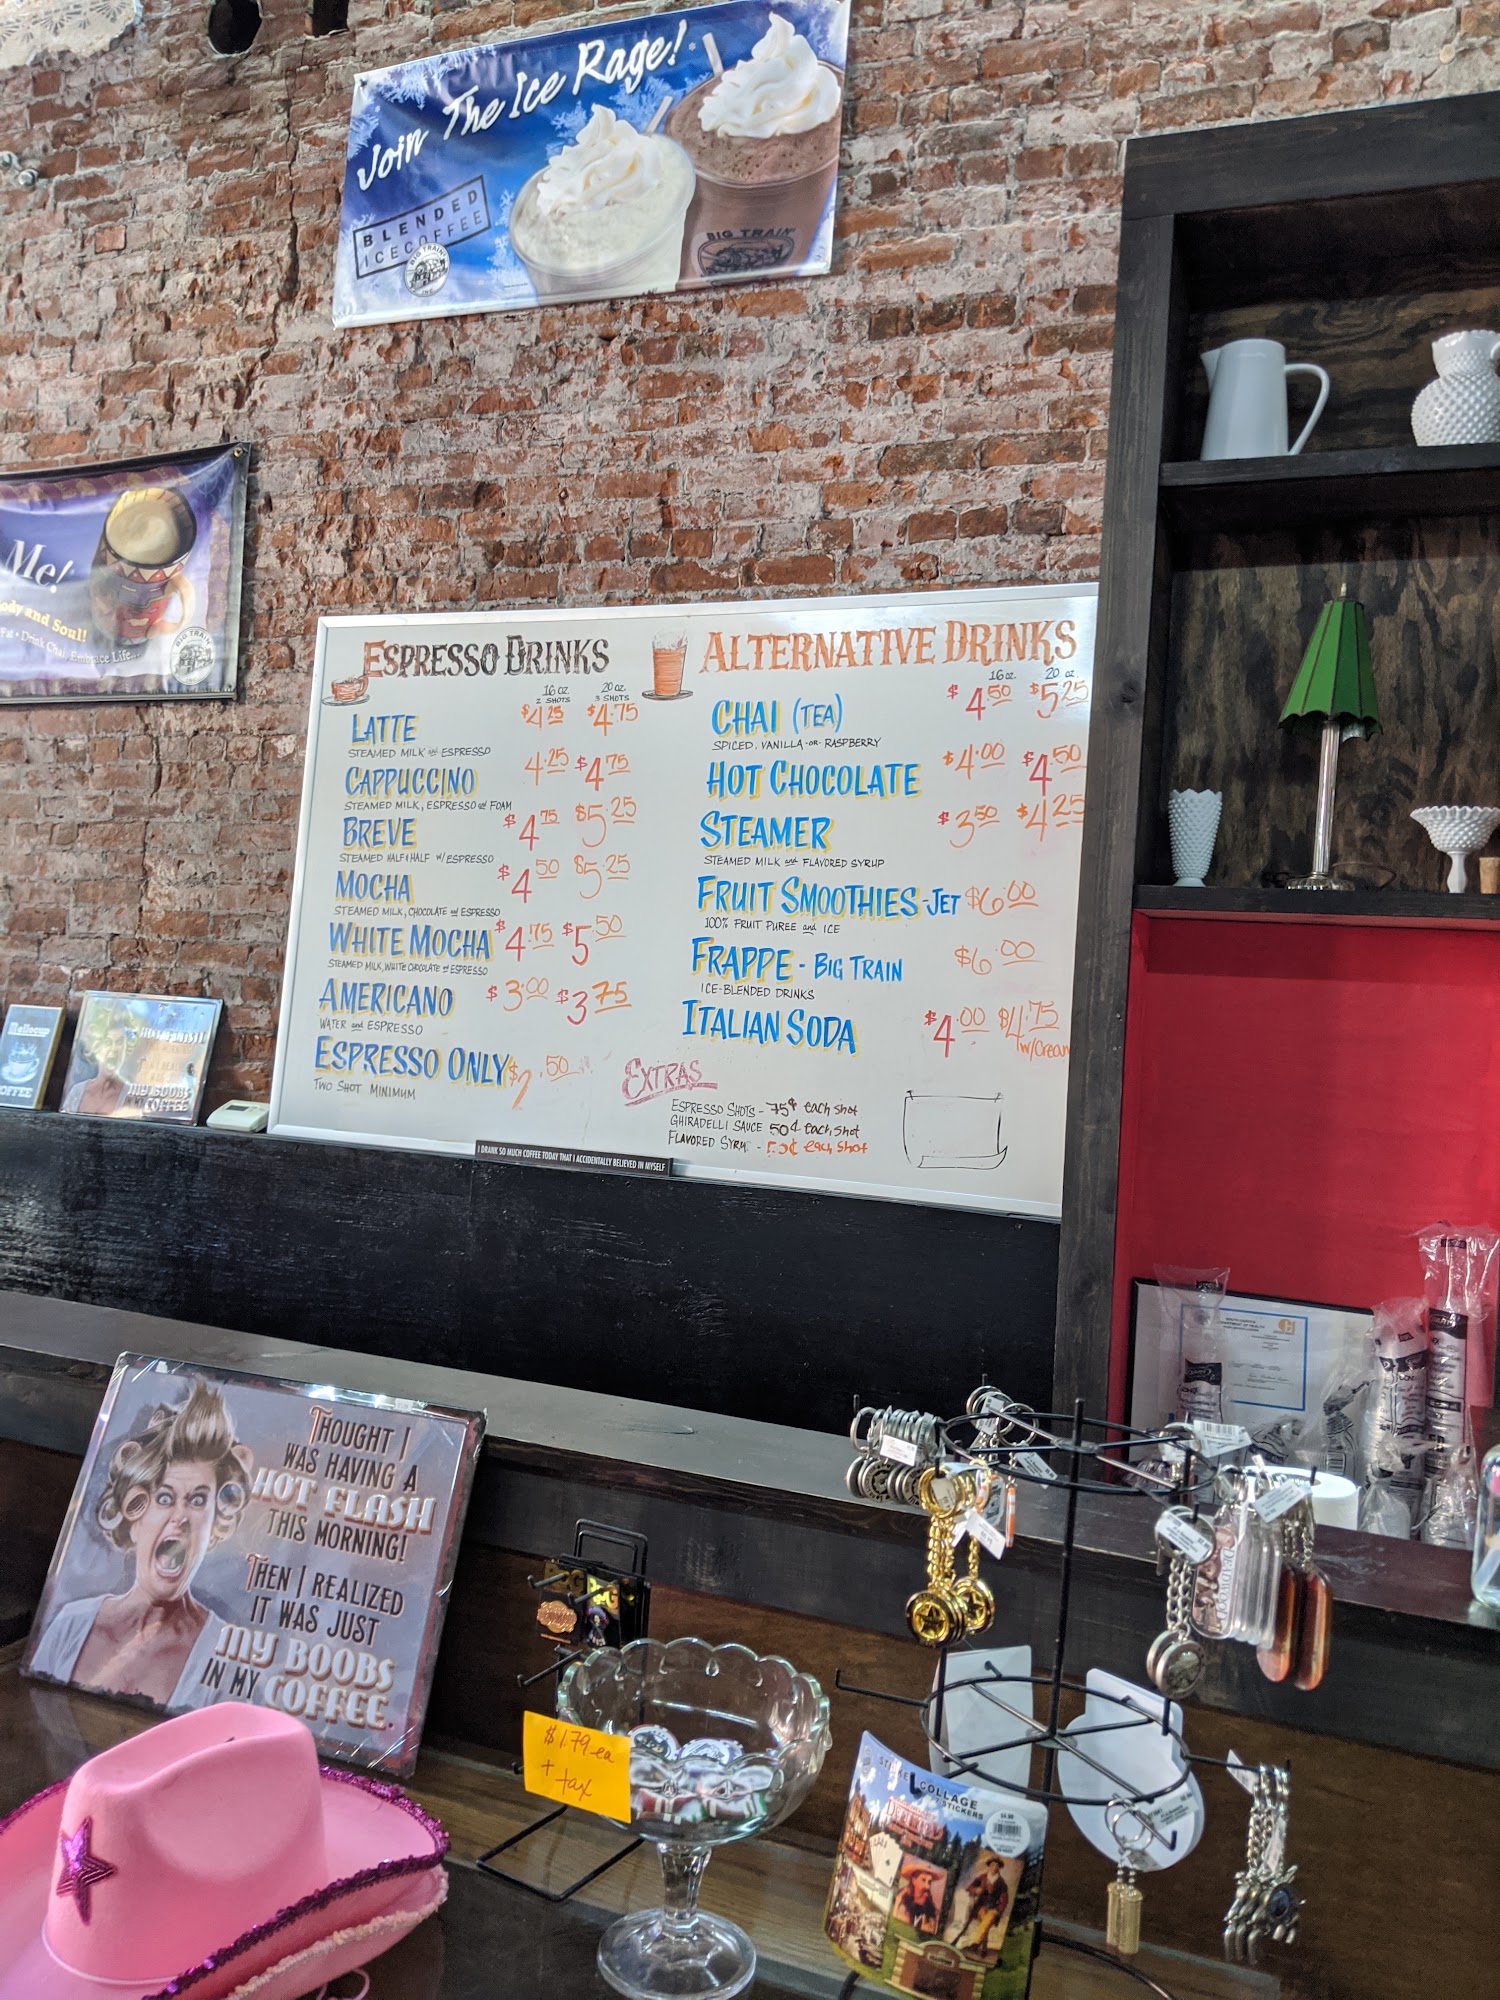 Join The Ice Rage!
BLENDED
ICECOFFEE
BIG TRAIN
INC.
BIG TRAIN
Me!
ody and Soul!
Fat • Drink Chai, Embrace Life...
BIG TRAIN
INC.
ESPRESSO DRINKS
16 oz. 20 oz.
2 SHOTS 3 SHOTS
LATTE $4.25 $4.75
STEAMED MILK and ESPRESSO
CAPPUCCINO 4.25 $4.75
STEAMED MILK, ESPRESSO and FOAM
BREVE $4.75 $5.25
STEAMED HALF & HALF W/ ESPRESSO
MOCHA $4.50 $5.25
STEAMED MILK, CHOCOLATE and ESPRESSO
WHITE MOCHA $4.75 $5.50
STEAMED MILK, WHITE CHOCOLATE and ESPRESSO
AMERICANO $3.00 $3.75
WATER and ESPRESSO
ESPRESSO ONLY $2.50
TWO SHOT MINIMUM
ALTERNATIVE DRINKS
16 oz. 20 oz.
CHAI (TEA) $4.50 $5.25
SPICED, VANILLA -OR- RASPBERRY
HOT CHOCOLATE $4.00 $4.50
STEAMER $3.50 $4.25
STEAMED MILK and FLAVORED SYRUP
FRUIT SMOOTHIES - JET $6.00
100% FRUIT PUREE and ICE
FRAPPE - BIG TRAIN $6.00
ICE-BLENDED DRINKS
ITALIAN SODA $4.00 $4.75
w/cream
EXTRAS
ESPRESSO SHOTS - 75¢ each shot
GHIRADELLI SAUCE 50¢ each shot
FLAVORED SYRU - 50¢ each shot
I DRANK SO MUCH COFFEE TODAY THAT I ACCIDENTALLY BELIEVED IN MYSELF
Mellocup
COFFEE
HOT FLASH
MY BOOBS
COFFEE
SOUTH DAKOTA
DEPARTMENT OF HEALTH
THOUGHT I
WAS HAVING A
HOT FLASH
THIS MORNING!
THEN I REALIZED
IT WAS JUST
MY BOOBS
IN MY COFFEE.
$1.79 ea
+ tax
COLLAGE
STICKERS
DEADWOOD